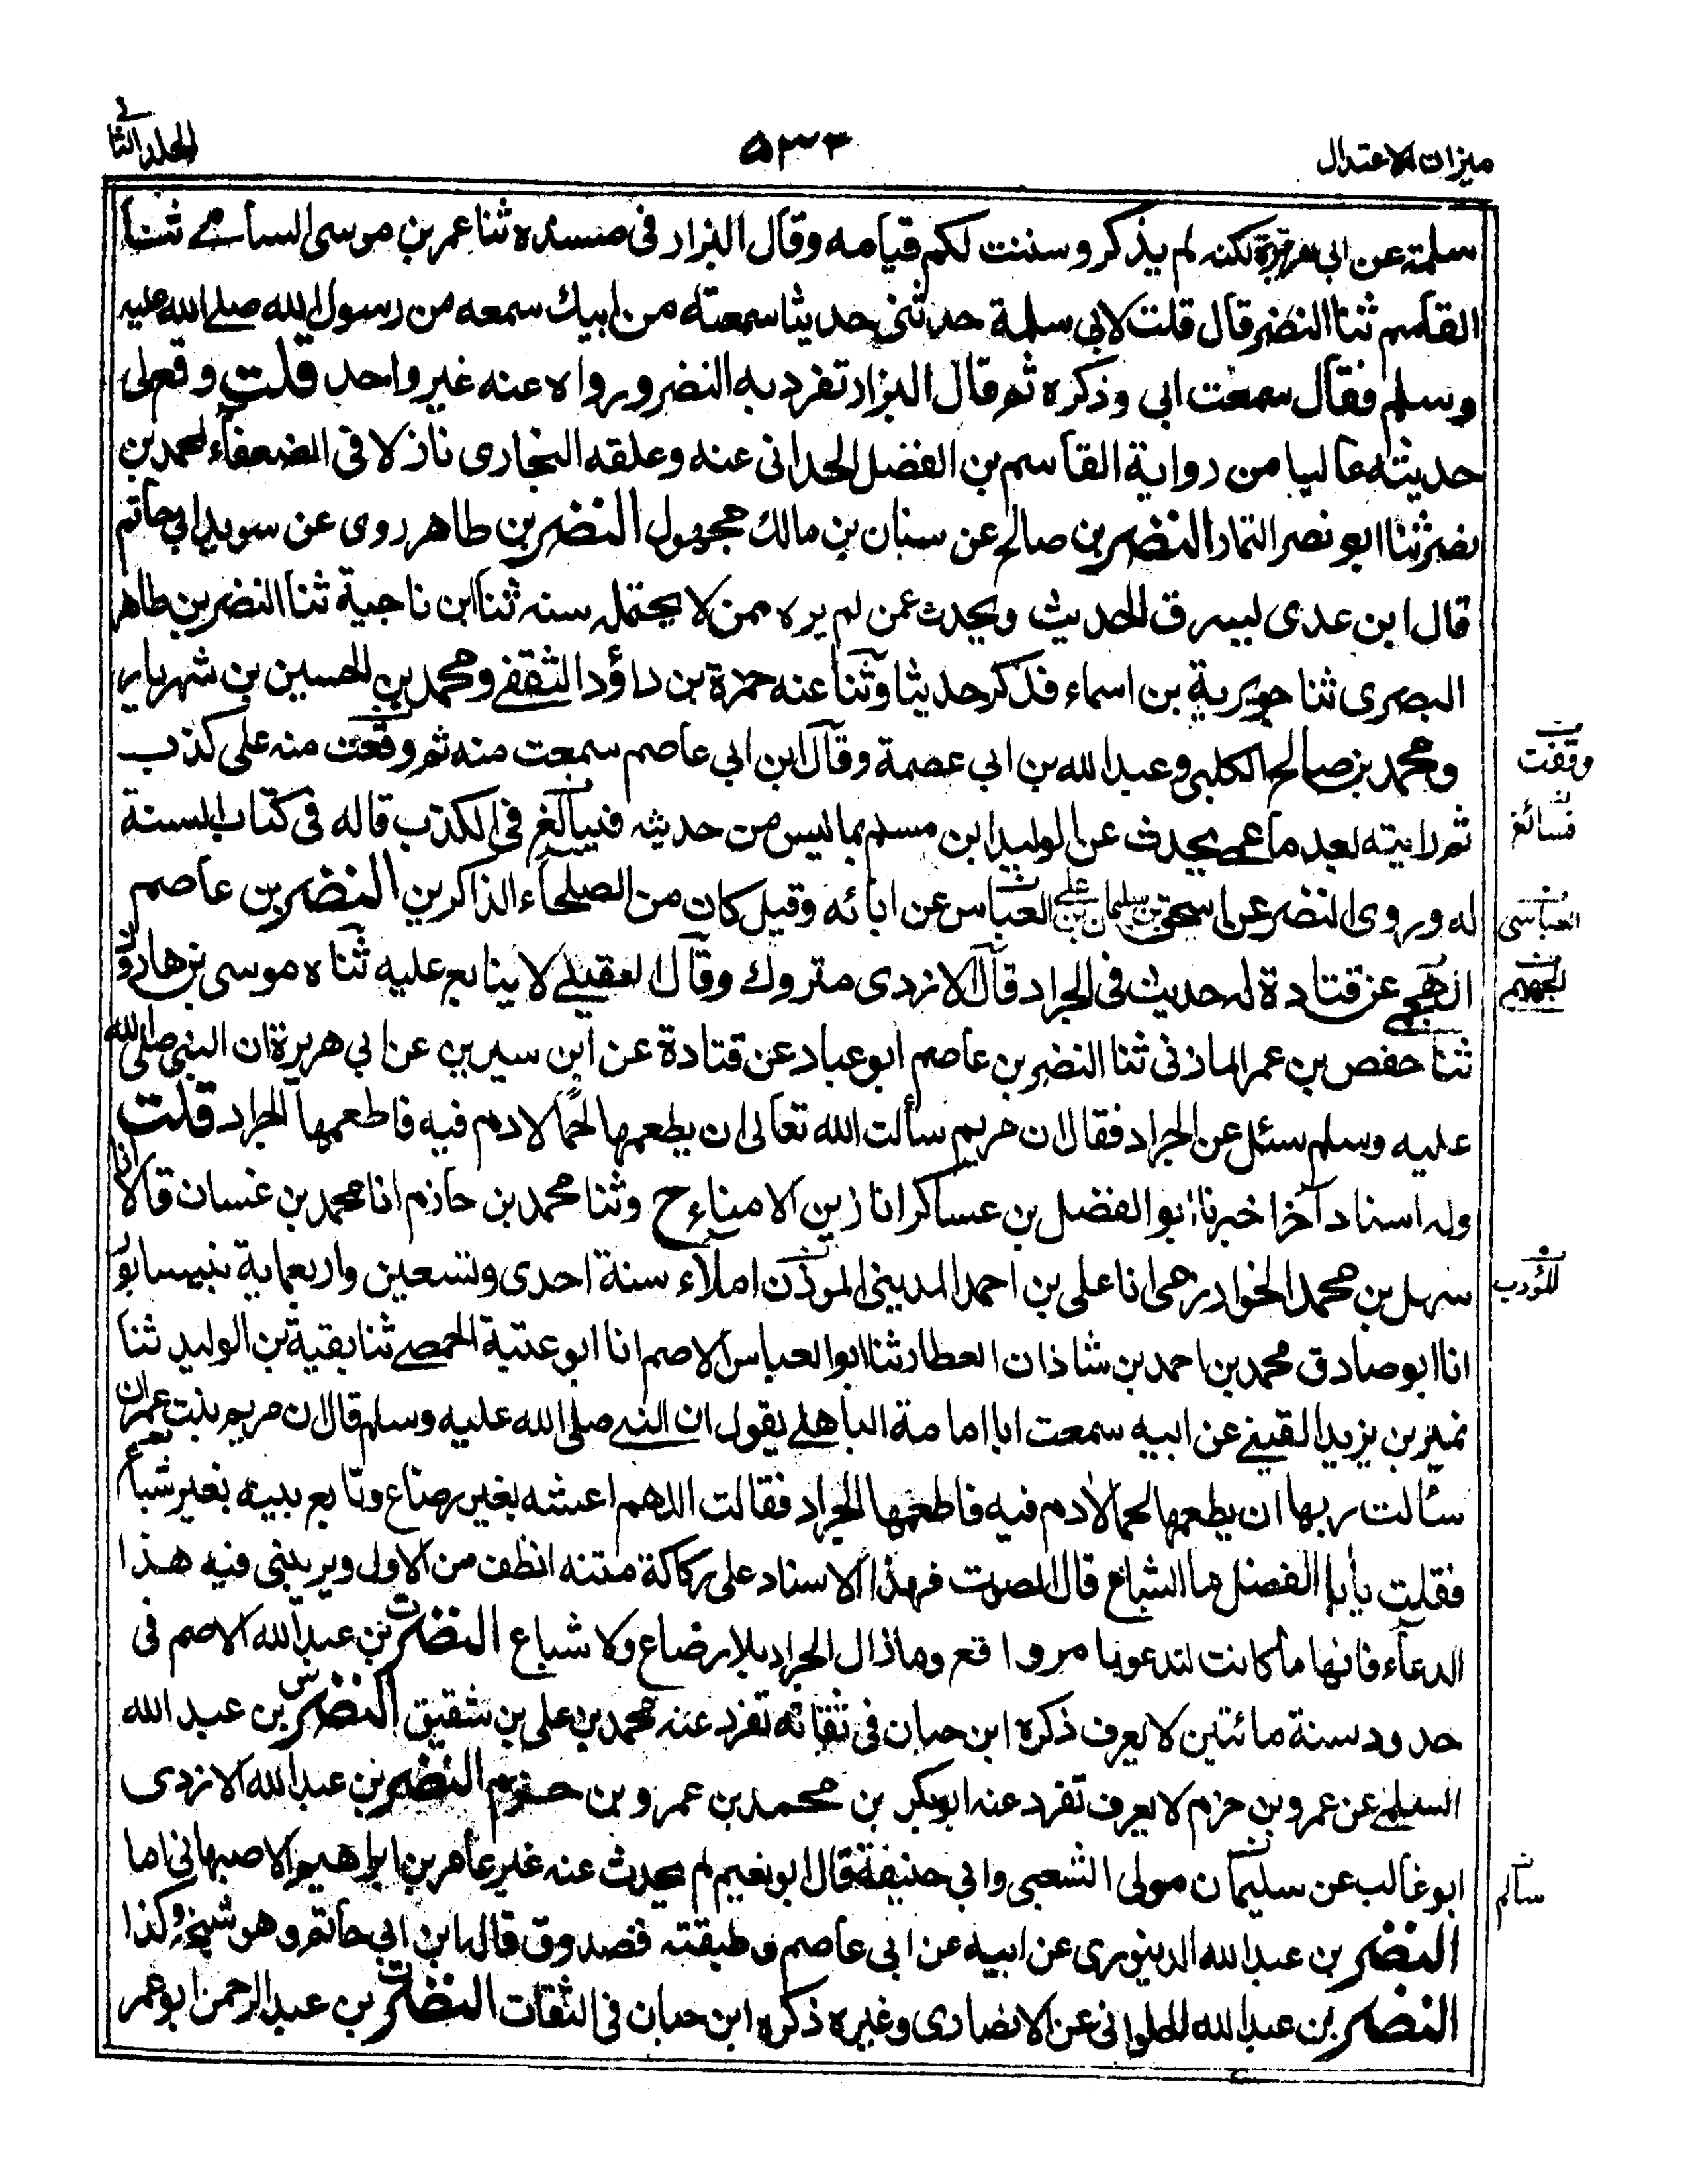 ميزان الاعتدال
٥٣٣
المجلد الثاني
سلمة عن ابى هريرة لكنه لم يذكر وسننت لكم قيامه وقال البزار فى مسنده ثنا عمر بن موسى السامى ثنا
القاسم ثنا النضر قال قلت لابى سلمة حدثنى حديثا سمعته من ابيك سمعه من رسول الله صلى الله عليه
وسلم فقال سمعت ابى وذكره ثم قال البزار تفرد به النضر ورواه عنه غير واحد قلت وقع لى
حديثه عاليا من رواية القاسم بن الفضل الحدانى عنه وعلقه البخارى نازلا فى الضعفاء لمحمد بن
نضر ثنا ابو نصر التمار النضر بن صالح عن سنان بن مالك مجهول النضر بن طاهر روى عن سويد ابى حاتم
قال ابن عدى ليسرق الحديث ويحدث عمن لم يره ممن لا يحتمله سنه ثنا ابن ناجية ثنا النضر بن طاهر
البصرى ثنا جويرية بن اسماء فذكر حديثا وثنا عنه حمزة بن داؤد الثقفى ومحمد بن الحسين بن شهريار
ومحمد بن صالح الكلبى وعبد الله بن ابى عصمة وقال ابن ابى عاصم سمعت منه ثم وقعت منه على كذب
وقفت
ثم رايته بعد ما عمى يحدث عن الوليد ابن مسلم بما ليس من حديثه فيبالغ فى الكذب قاله فى كتاب السنة
له وروى النضر عن اسحق بن سليمان بن على العباس عن ابائه وقيل كان من الصلحاء الذاكرين النضر بن عاصم
العباسى
الهجيمى عن قتادة له حديث فى الجراد قال الازدى متروك وقال العقيلى لا يتابع عليه ثناه موسى بن هارون
ثنا حفص بن عمر المازنى ثنا النضر بن عاصم ابو عباد عن قتادة عن ابن سيرين عن ابى هريرة ان النبى صلى الله
عليه وسلم سئل عن الجراد فقال ان مريم سألت الله تعالى ان يطعمها لحما لادم فيه فاطعمها الجراد قلت
وله اسناد آخر اخبرنا ابو الفضل بن عساكر انا زين الامناء ح وثنا محمد بن حازم انا محمد بن غسان قالا انا
سهل بن محمد الخوارزمى انا على بن احمد المدينى الموذن املاء سنة احدى وتسعين واربعماية بنيسابور
المؤدب
انا ابو صادق محمد بن احمد بن شاذان العطار ثنا ابو العباس الاصم انا ابو عتبة الحمصى ثنا بقية بن الوليد ثنا
نمير بن يزيد القينى عن ابيه سمعت ابا امامة الباهلى يقول ان النبى صلى الله عليه وسلم قال ان مريم بنت عمران
سئالت ربها ان يطعمها لحما لادم فيه فاطعمها الجراد فقالت اللهم اعشه بغير رضاع وتابع بينه بغير شباع
فقلت يا ابا الفضل ما الشباع قال الصوت فهذا الاسناد على ركاكة متنه انظف من الاول ويريبنى فيه هذا
الدعاء فانها ما كانت لتدعو بامر واقع وما زال الجراد بلا رضاع ولا شباع النضر بن عبد الله الاصم فى
حدود سنة مائتين لا يعرف ذكره ابن حبان فى ثقاته تفرد عنه محمد بن على بن شقيق النضر بن عبد الله
السلمى عن عمرو بن حزم لا يعرف تفرد عنه ابو بكر بن محمد بن عمرو بن حزم النضر بن عبد الله الازدى
ابو غالب عن سليمان مولى الشعبى وابى حنيفة قال ابو نعيم لم يحدث عنه غير عامر بن ابراهيم الاصبهانى اما
سالم
النضر بن عبد الله الدينورى عن ابيه عن ابى عاصم وطبقته فصدوق قال ابن ابى حاتم وهو شيخ وكذا
النضر بن عبد الله الحلوانى عن الانصارى وغيره ذكره ابن حبان فى الثقات النضر بن عبد الرحمن ابو عمر